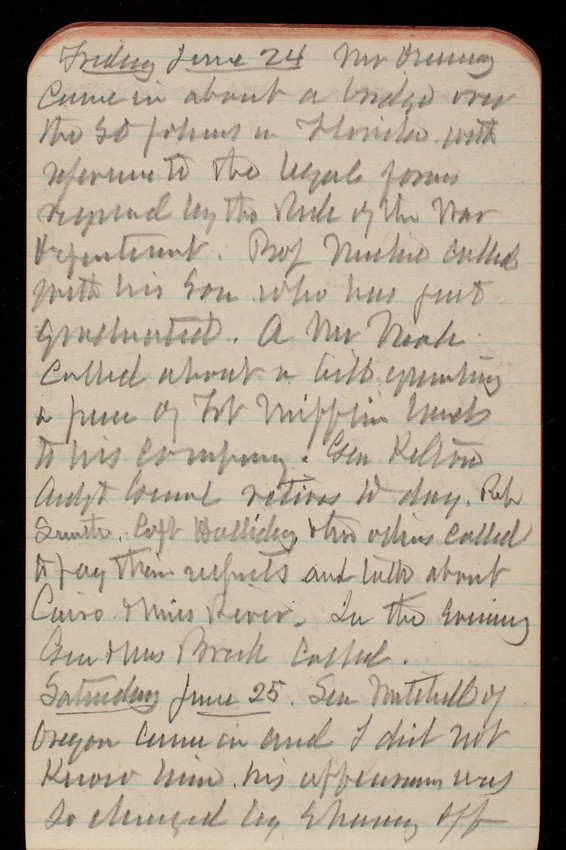 Friday June 24 Mr
came in about a bridge over
the St Johns in Florida with
reference to the legal forms
required by the rule of the War
Department. Prof Michie called
with his Son who has just
graduated. A Mr
called about a bill granting
a piece of Ft Mifflin lands
to his company. Gen Kelton
Adjt Genl retires to day. Rep
Capt Halliday & two others called
to pay their respects and talk about
Cairo & Miss River. In the evening
Gen & Mrs Breck called.
Saturday June 25. Sen Mitchell of
Oregon came in and I did not
know him. his appearance was
so changed by shaving off